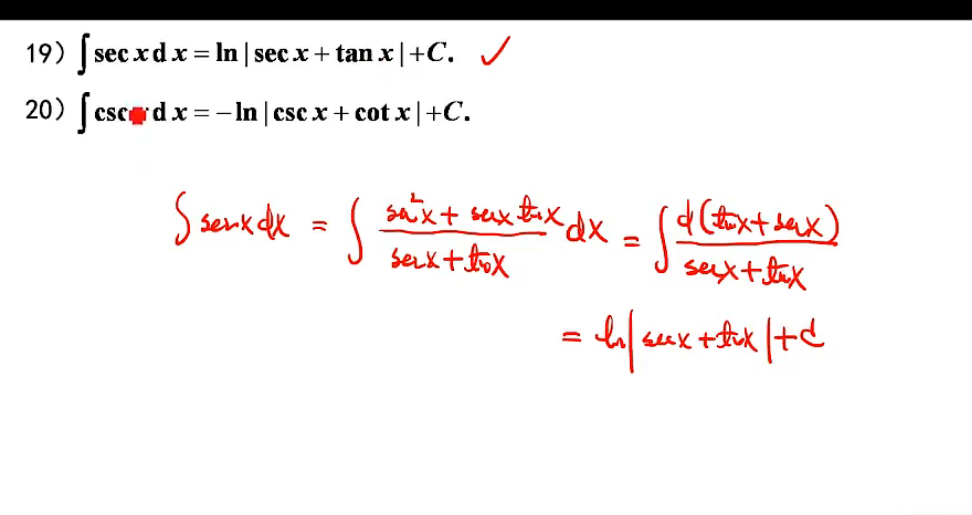 19) ∫ sec x d x = ln | sec x + tan x | +C. ✓
20) ∫ csc x d x = − ln | csc x + cot x | +C.
∫ secx dx = ∫ (sec²x + secx tanx)/(secx + tanx) dx = ∫ d(tanx + secx)/(secx + tanx)
= ln|secx + tanx| + C